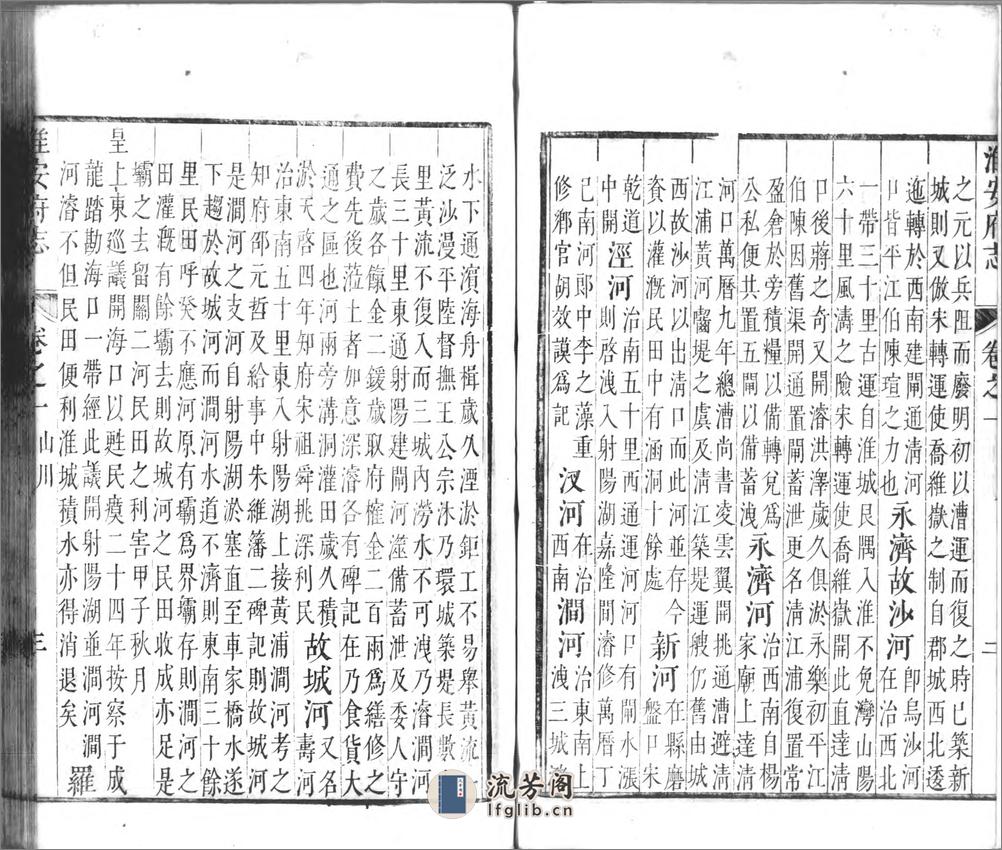 淮安府志
卷之一
二
之元以兵阻而廢明初以漕運而復之時已築新
城則又倣宋轉運使喬維嶽之制自郡城西北透
迤轉於西南建閘通淸河
口皆平江伯陳瑄之力也永濟故沙河在治西北
卽烏沙河
一帶三十里古運自淮城艮隅入淮不免灣山陽
六十里風濤之險宋轉運使喬維嶽開此直達淸
口後蔣之奇又開濬洪澤歲久俱淤永樂初平江
伯陳因舊渠開通置閘蓄泄更名淸江浦復置常
盈倉於旁積糧以備轉兌爲
公私便共置五閘以備蓄洩永濟河治西南自楊
家廟上達淸
河口萬曆九年總漕尚書凌雲翼開挑通漕避淸
江浦黃河嚙堤之虞及淸江築堤運艘仍舊由城
西故沙河以出淸口而此河並存今
資以灌溉民田中有涵洞十餘處新河在縣磨
盤口宋
乾道涇河治南五十里西通運河口有閘水漲
中開則啓洩入射陽湖嘉隆間濬修萬曆丁
巳南河郎中李之藻重
修鄉官胡效謨爲記汊河在治東南上
西南澗河洩三城
水下通濱海舟楫歲久湮淤鉅工不易舉黃流
泛沙漫平陸督撫王公宗沐乃環城築堤長數
里黃流不復入而三城內澇水不可洩乃濬澗河
長三十里東通射陽建閘河滋備蓄泄及委人守
之歲各餼金二鍰歲取府榷金二百兩爲繕修之
費先後蒞土者如意深濬各有碑記在乃食貨大
通之區也河兩旁溝洞灌田歲久積
淤天啓四年知府宋祖舜挑深利民故城河又名
壽河
治東南五十里東入射陽湖上接黃浦澗河考之
知府邵元哲及給事中朱維藩二碑記則故城河
是澗河之支河自射陽湖淤塞直至車家橋水遂
下趨於故城河而澗河水道不濟則東南三十餘
里民田呼癸不應河原有壩爲界壩存則澗河之
田灌漑有餘壩去則故城河之民田收成亦足是
壩之去留關二河民田之利害甲子秋月
皇上東巡議開海口以甦民瘼二十四年按察于成
龍踏勘海口一帶經此議開射陽湖並澗河澗
河濬不但民田便利淮城積水亦得消退矣羅
淮安府志
卷之一
山川
三
流芳阁
lfglib.cn